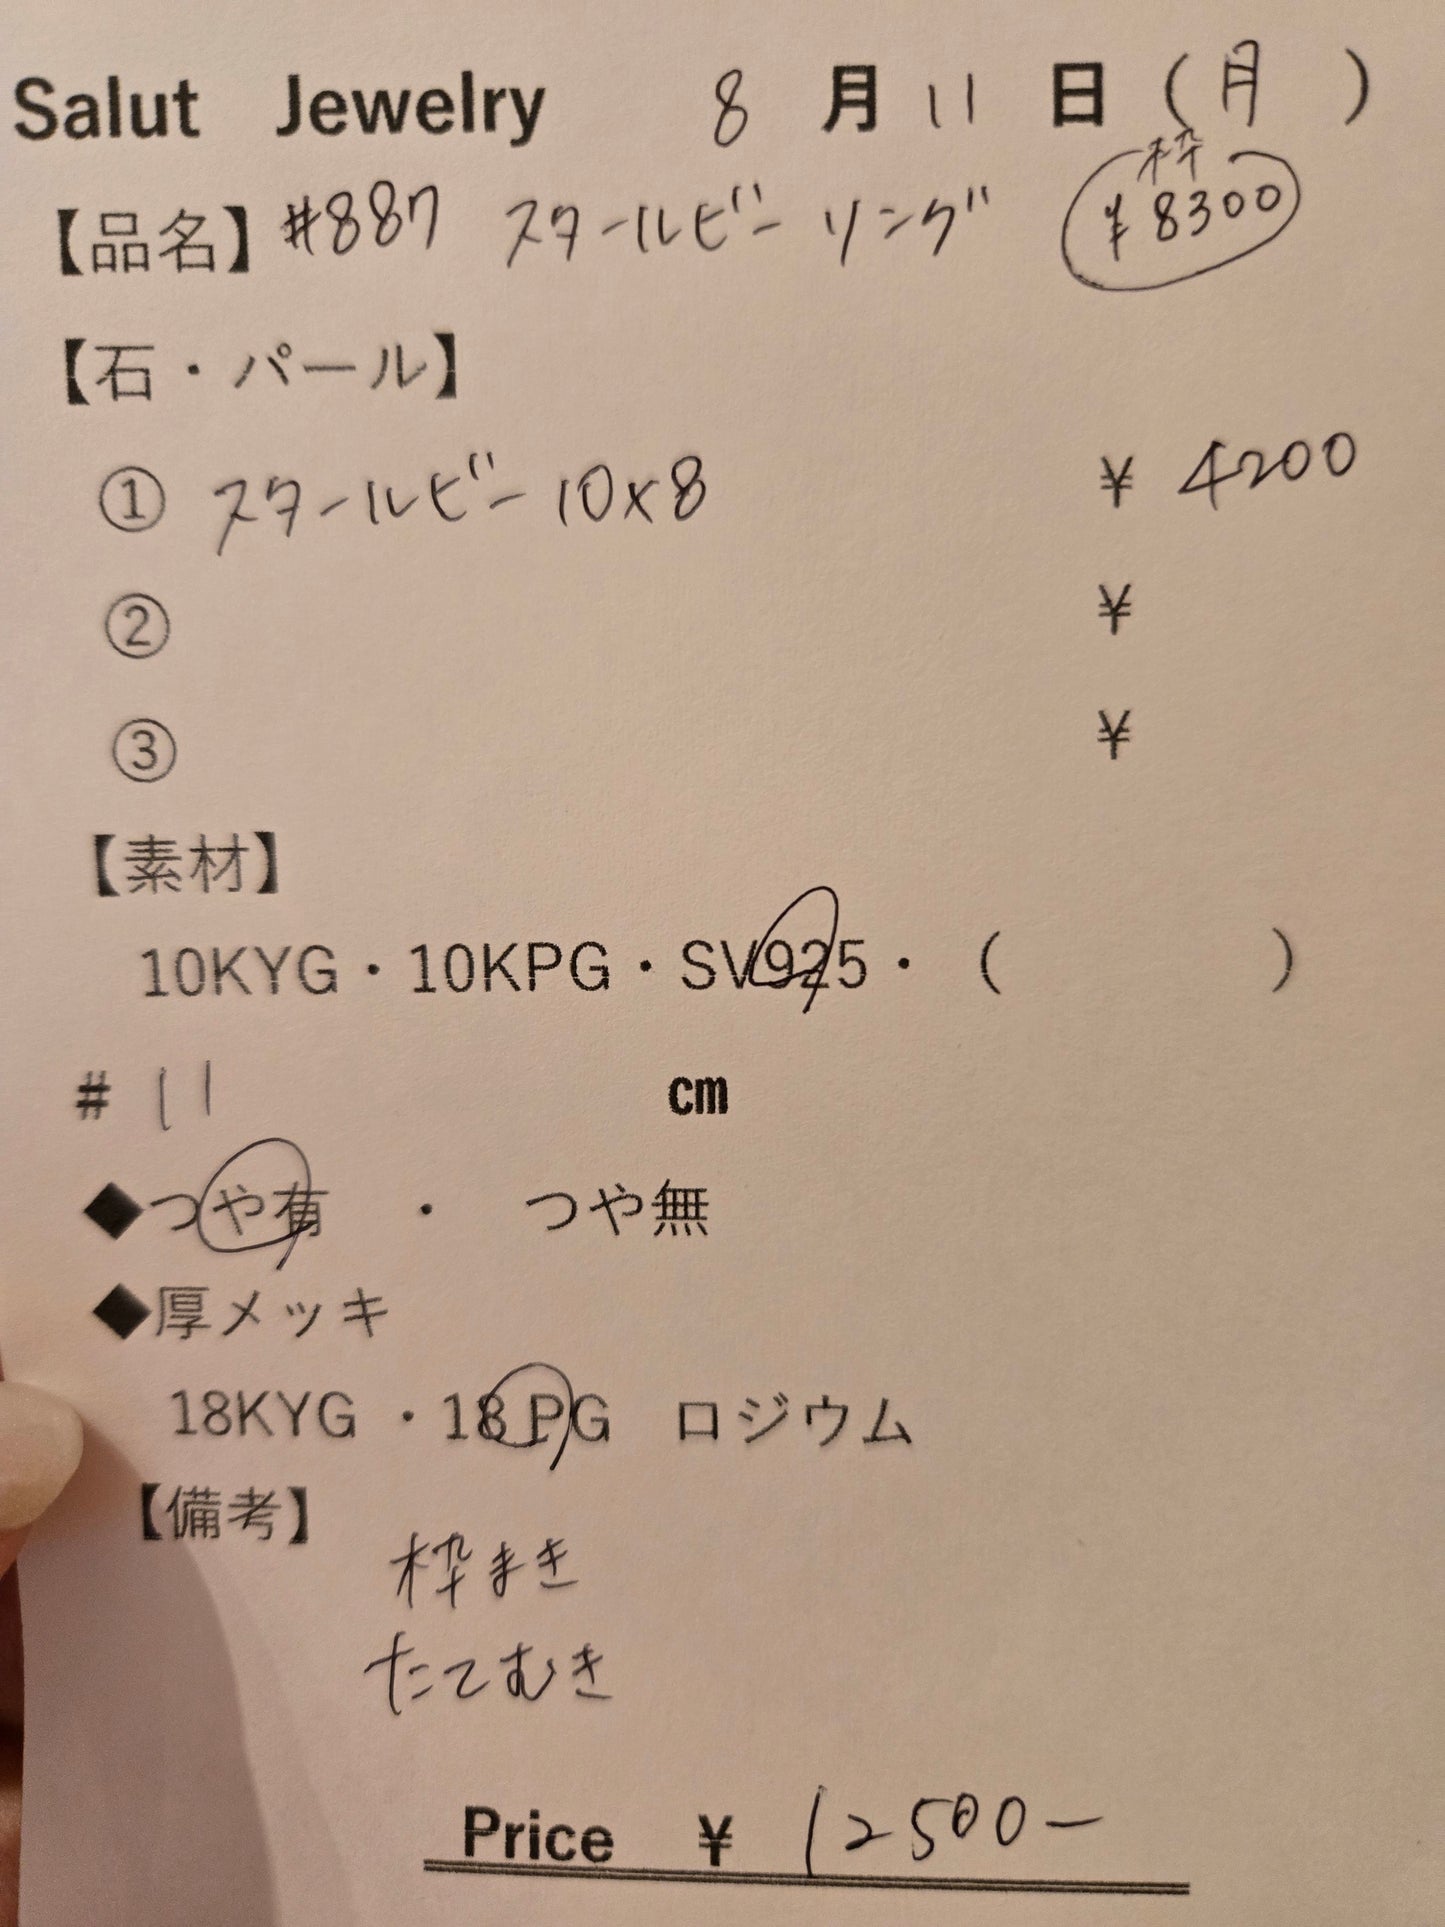 Salut Jewelry 8月11日(月)
【品名】#887 スタールビー リング 枠 ¥8300
【石・パール】
① スタールビー 10×8 ¥ 4200
② ¥
③ ¥
【素材】
10KYG・10KPG・SV925・( )
# 11 cm
◆つや有 ・ つや無
◆厚メッキ
18KYG ・18 PG ロジウム
【備考】
枠まき
たてむき
Price ¥ 12500-